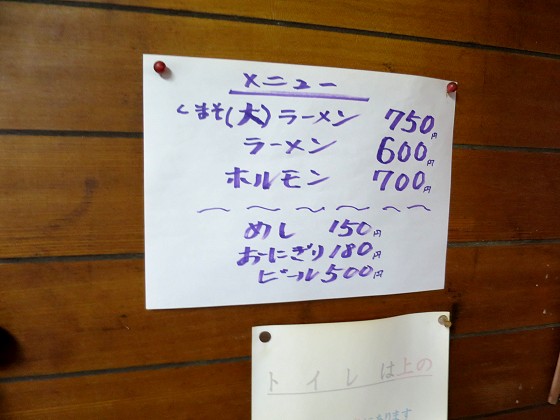 メニュー
くまそ(大)ラーメン 750円
ラーメン 600円
ホルモン 700円
〜〜〜〜〜〜
めし 150円
おにぎり 180円
ビール 500円
トイレは上の
にあります